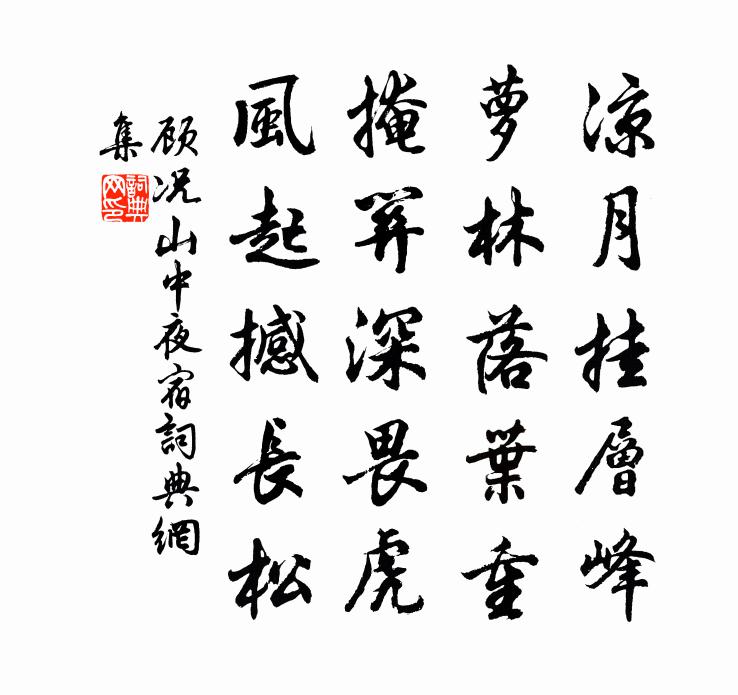 涼月挂層峰
萝林落葉重
掩關深畏虎
風起撼長松
顾况山中夜宿詞典網
集
詞典
网印